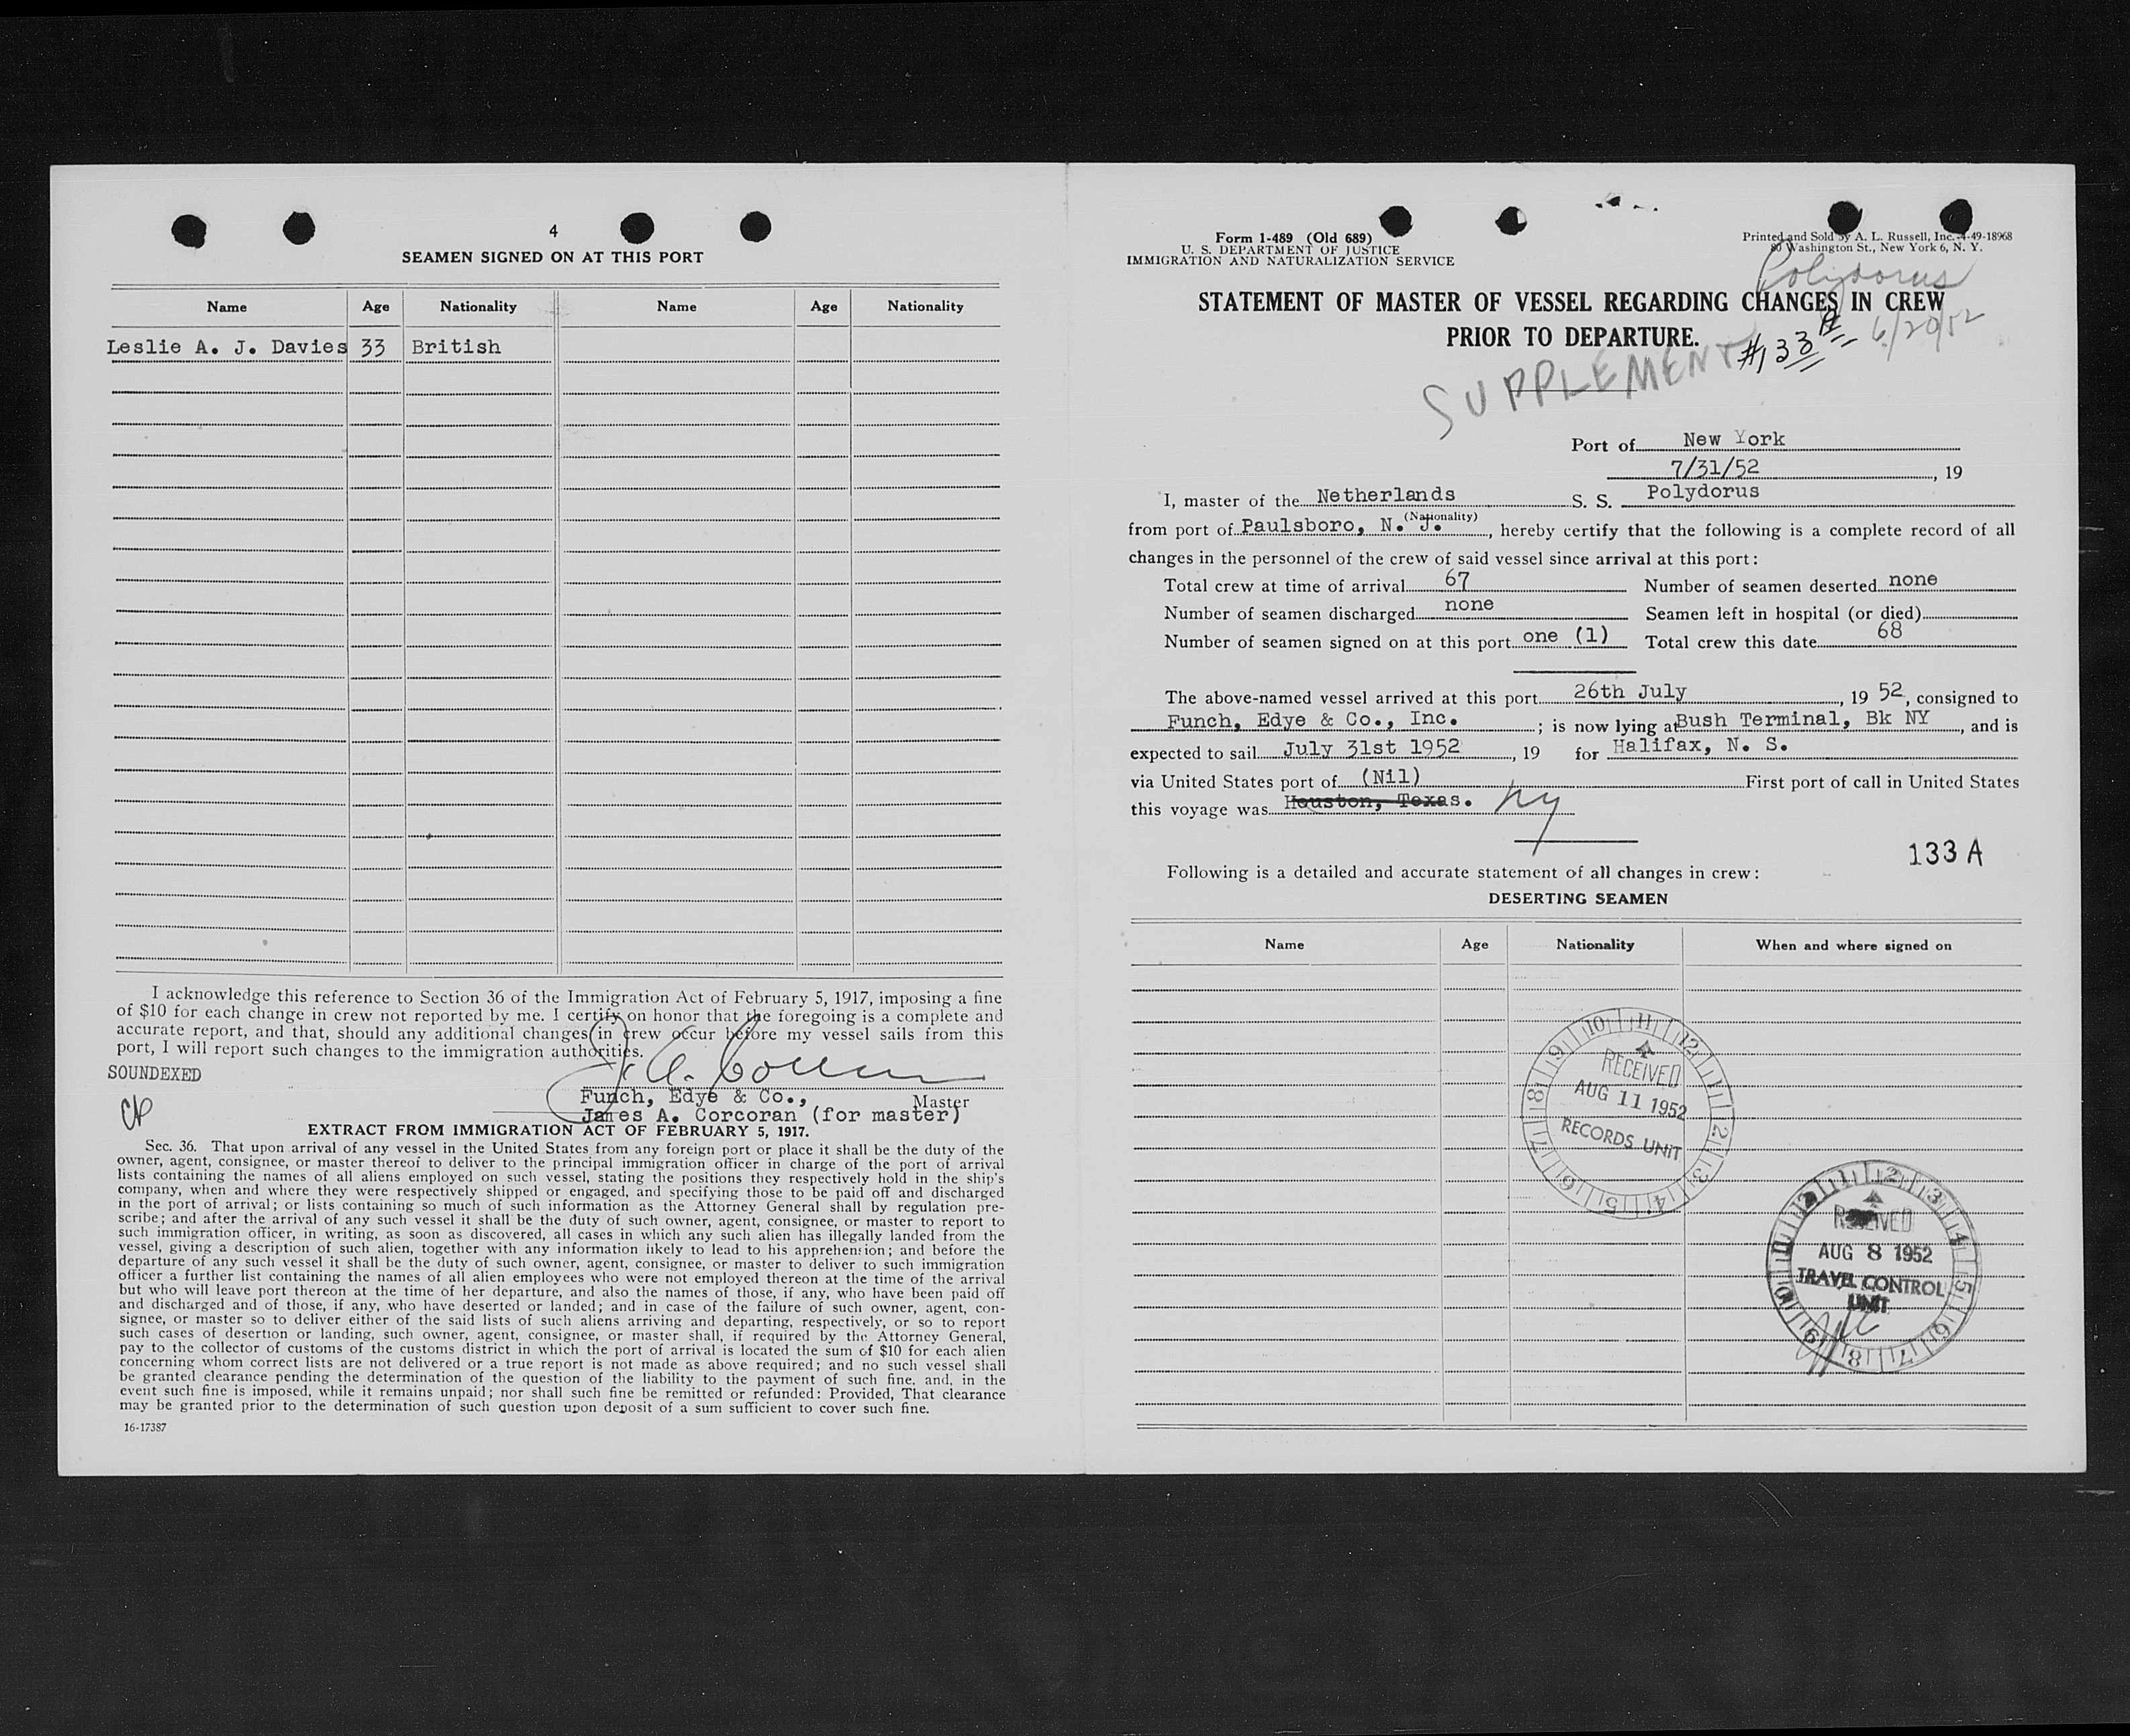 4
SEAMEN SIGNED ON AT THIS PORT
Name Age Nationality Name Age Nationality
Leslie A. J. Davies 33 British
I acknowledge this reference to Section 36 of the Immigration Act of February 5, 1917, imposing a fine
of $10 for each change in crew not reported by me. I certify on honor that the foregoing is a complete and
accurate report, and that, should any additional changes in crew occur before my vessel sails from this
port, I will report such changes to the immigration authorities.
SOUNDEXED
Funch, Edye & Co., Master
James A. Corcoran (for master)
EXTRACT FROM IMMIGRATION ACT OF FEBRUARY 5, 1917.
Sec. 36. That upon arrival of any vessel in the United States from any foreign port or place it shall be the duty of the
owner, agent, consignee, or master thereof to deliver to the principal immigration officer in charge of the port of arrival
lists containing the names of all aliens employed on such vessel, stating the positions they respectively hold in the ship's
company, when and where they were respectively shipped or engaged, and specifying those to be paid off and discharged
in the port of arrival; or lists containing so much of such information as the Attorney General shall by regulation pre-
scribe; and after the arrival of any such vessel it shall be the duty of such owner, agent, consignee, or master to report to
such immigration officer, in writing, as soon as discovered, all cases in which any such alien has illegally landed from the
vessel, giving a description of such alien, together with any information likely to lead to his apprehension; and before the
departure of any such vessel it shall be the duty of such owner, agent, consignee, or master to deliver to such immigration
officer a further list containing the names of all alien employees who were not employed thereon at the time of the arrival
but who will leave port thereon at the time of her departure, and also the names of those, if any, who have been paid off
and discharged and of those, if any, who have deserted or landed; and in case of the failure of such owner, agent, con-
signee, or master so to deliver either of the said lists of such aliens arriving and departing, respectively, or so to report
such cases of desertion or landing, such owner, agent, consignee, or master shall, if required by the Attorney General,
pay to the collector of customs of the customs district in which the port of arrival is located the sum of $10 for each alien
concerning whom correct lists are not delivered or a true report is not made as above required; and no such vessel shall
be granted clearance pending the determination of the question of the liability to the payment of such fine, and, in the
event such fine is imposed, while it remains unpaid; nor shall such fine be remitted or refunded: Provided, That clearance
may be granted prior to the determination of such question upon deposit of a sum sufficient to cover such fine.
16-17387
Form 1-489 (Old 689)
U. S. DEPARTMENT OF JUSTICE
IMMIGRATION AND NATURALIZATION SERVICE
Printed and Sold by A. L. Russell, Inc.-4-49-18968
80 Washington St., New York 6, N. Y.
Polydorus
STATEMENT OF MASTER OF VESSEL REGARDING CHANGES IN CREW
PRIOR TO DEPARTURE.
#133 A 6/20/52
SUPPLEMENT
Port of New York
7/31/52, 19
I, master of the Netherlands S. S. Polydorus
(Nationality)
from port of Paulsboro, N. J., hereby certify that the following is a complete record of all
changes in the personnel of the crew of said vessel since arrival at this port:
Total crew at time of arrival 67 Number of seamen deserted none
Number of seamen discharged none Seamen left in hospital (or died)
Number of seamen signed on at this port one (1) Total crew this date 68
The above-named vessel arrived at this port 26th July, 19 52, consigned to
Funch, Edye & Co., Inc. ; is now lying at Bush Terminal, Bk NY, and is
expected to sail July 31st 1952, 19 for Halifax, N. S.
via United States port of (Nil) First port of call in United States
this voyage was Houston, Texas. Ny
133 A
Following is a detailed and accurate statement of all changes in crew:
DESERTING SEAMEN
Name Age Nationality When and where signed on
RECEIVED
AUG 11 1952
RECORDS UNIT
RECEIVED
AUG 8 1952
TRAVEL CONTROL
UNIT